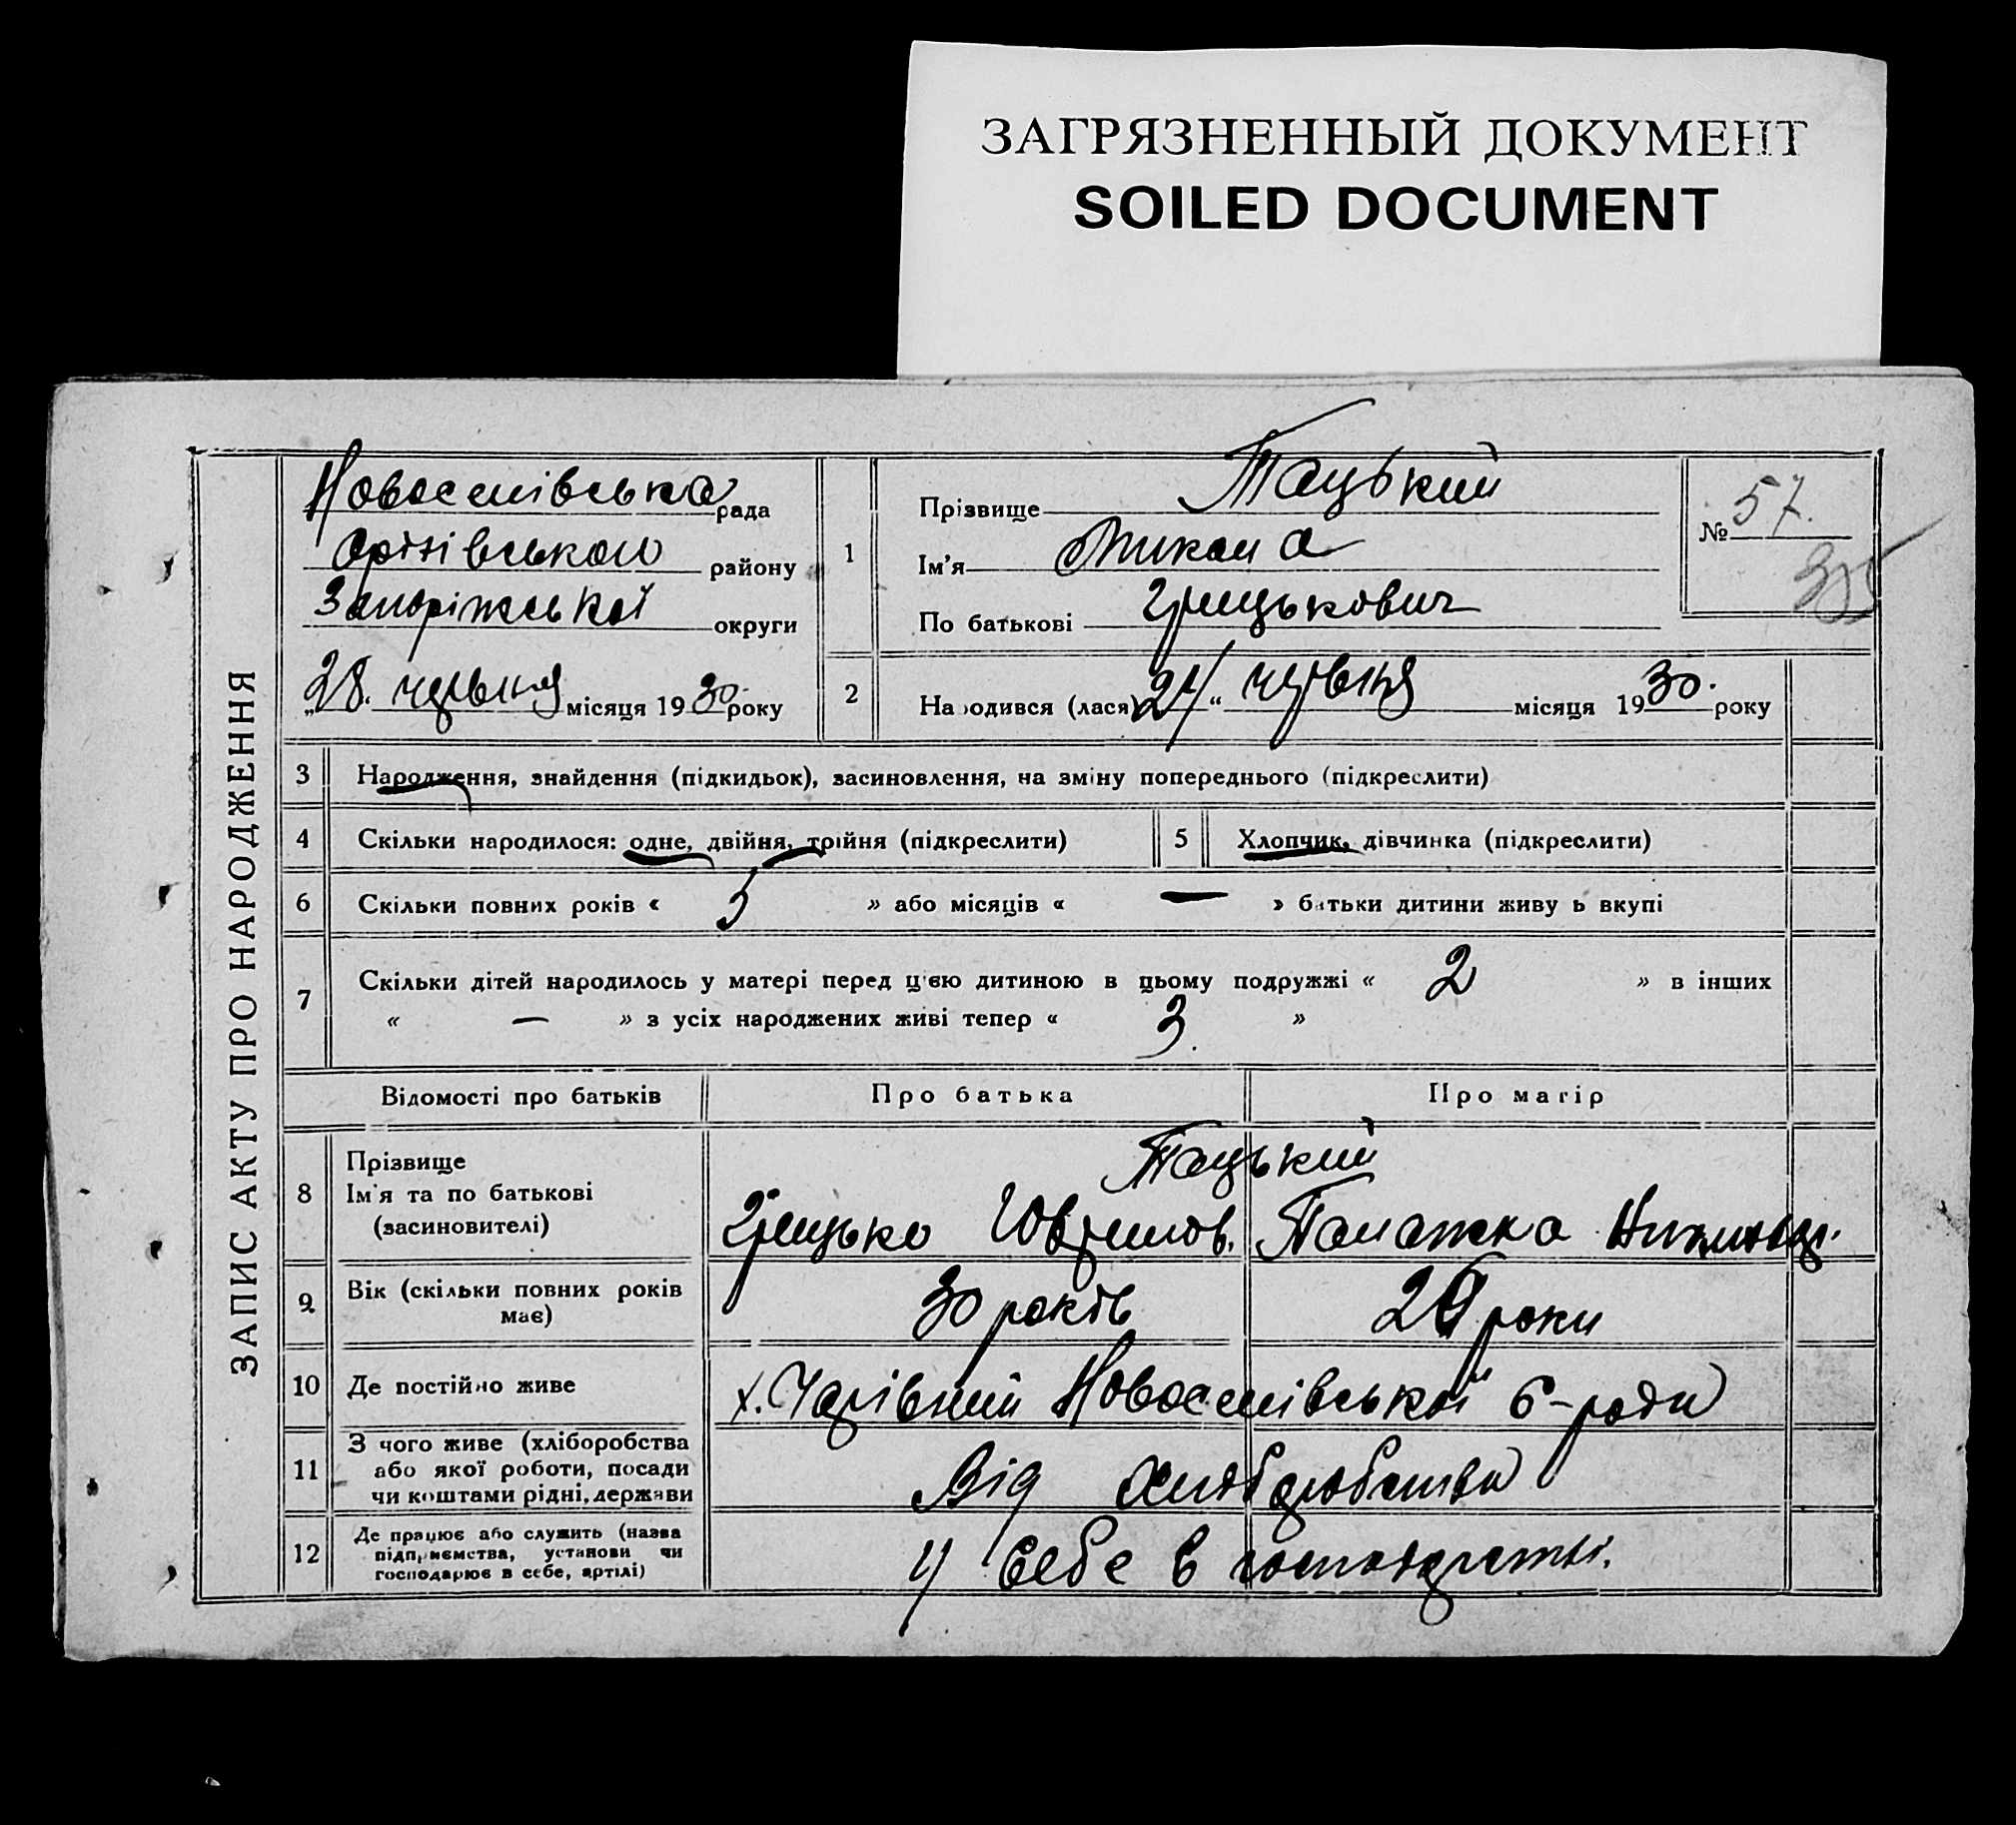 ЗАГРЯЗНЕННЫЙ ДОКУМЕНТ
SOILED DOCUMENT
ЗАПИС АКТУ ПРО НАРОДЖЕННЯ
рада
Оріхівського району
Запоріжської округи
„28. червня місяця 1930. року
1
Прізвище Тацький
Ім'я Микола
По батькові Грицькович
№ 57.
2
Народився (лася) 24 “ червня місяця 1930. року
3 Народження, знайдення (підкидьок), засиновлення, на зміну попереднього (підкреслити)
4 Скільки народилося: одне, двійня, трійня (підкреслити)
5 Хлопчик, дівчинка (підкреслити)
6 Скільки повних років « 5 » або місяців « — » батьки дитини живуть вкупі
7 Скільки дітей народилось у матері перед цією дитиною в цьому подружжі « 2 » в інших
« — » з усіх народжених живі тепер « 3. »
Відомості про батьків
Про батька
Про матір
8 Прізвище
Ім'я та по батькові
(засиновителі)
Тацький
Грицько Ювхимов. Палажка
9 Вік (скільки повних років
має)
30 років
роки
10 Де постійно живе
х. Чарівний б-ради
11 З чого живе (хліборобства
або якої роботи, посади
чи коштами рідні, держави
Від хліборобства
12 Де працює або служить (назва
підприємства, установи чи
господарює в себе, артілі)
У себе в господарстві.